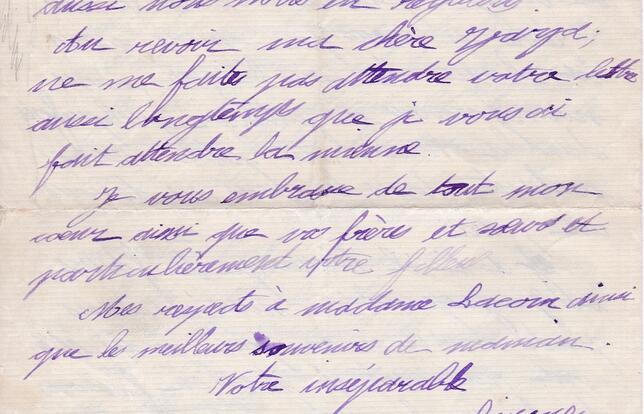 Au revoir ma chère Zaza;
ne me faites pas attendre votre lettre
aussi longtemps que je vous ai
fait attendre la mienne.
Je vous embrasse de tout mon
cœur ainsi que vos frères et sœurs et
particulièrement votre
Mes respects à madame Lacoin ainsi
que les meilleurs souvenirs de maman.
Votre inséparable